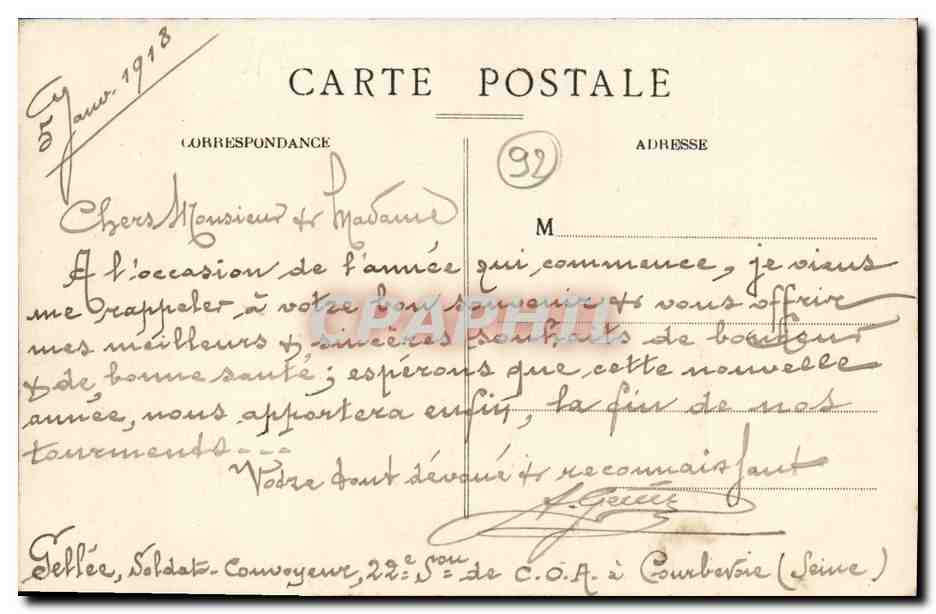 5 Janv. 1918
CARTE POSTALE
CORRESPONDANCE
92
ADRESSE
Chers Monsieur & Madame
M
A l'occasion de l'année qui commence, je viens
me rappeler à votre bon souvenir & vous offrir
mes meilleurs & sincères souhaits de bonheur
& de bonne santé; espérons que cette nouvelle
année, nous apportera enfin, la fin de nos
tourments ---
Votre tout dévoué & reconnaissant
Gellée, Soldat-Convoyeur, 22e Son de C.O.A. à Courbevoie (Seine)
CPAPHIL